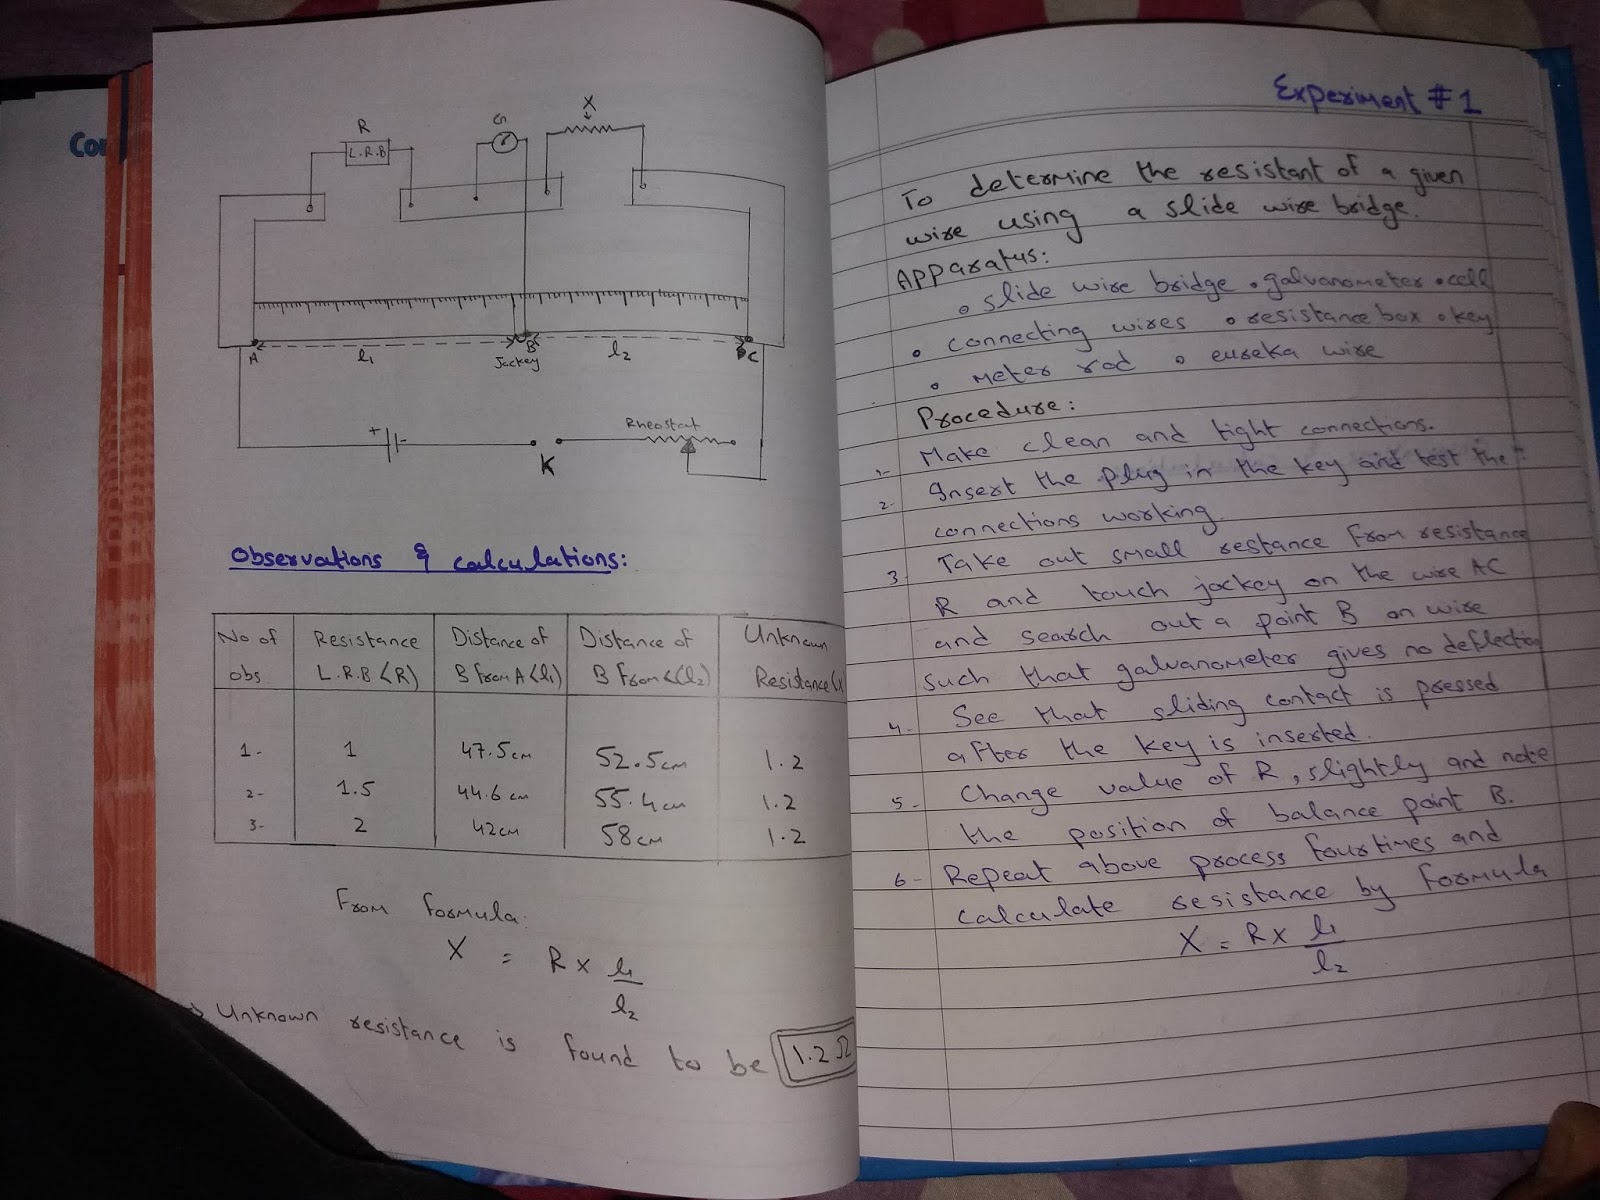 Cou
R
L.R.B
G
X
A
l1
B
Jackey
l2
C
+ -
K
Rheostat
Observations & calculations:
No of obs | Resistance L.R.B <R) | Distance of B from A <l1) | Distance of B from <(l2) | Unknown Resistance(x
1- | 1 | 47.5cm | 52.5cm | 1.2
2- | 1.5 | 44.6 cm | 55.4cm | 1.2
3- | 2 | 42cm | 58cm | 1.2
From formula:
X = R x l1/l2
Unknown resistance is found to be 1.2 Ω
Experiment # 1
To determine the resistant of a given
wire using a slide wire bridge.
Apparatus:
o slide wire bridge • galvanometer • cell
• connecting wires o resistance box • key
• Meter rod o eureka wire
Procedure:
1- Make clean and tight connections.
2- Insert the plug in the key and test the
connections working.
3 Take out small restance from resistance
R and touch jockey on the wire AC
and search out a point B on wire
such that galvanometer gives no deflection
4- See that sliding contact is pressed
after the key is inserted.
5- Change value of R, slightly and note
the position of balance point B.
6- Repeat above process four times and
calculate resistance by formula
X = R x l1/l2